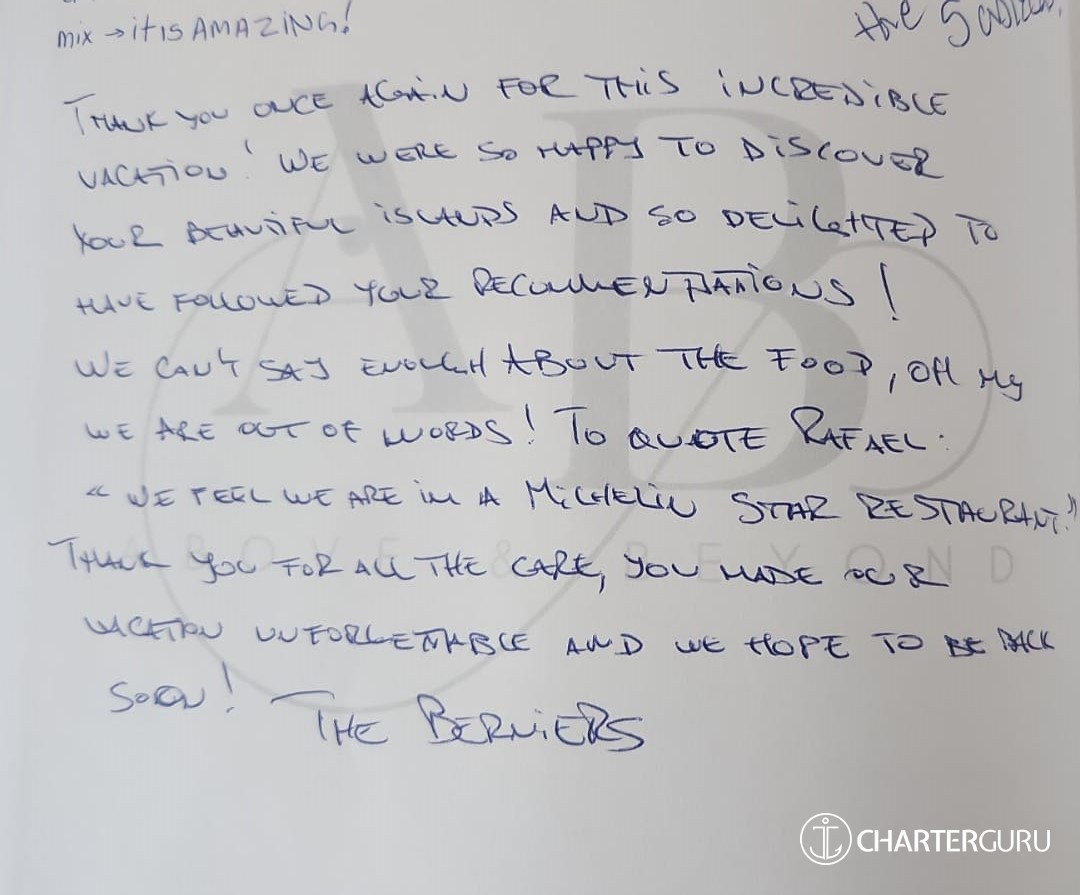 mix → it is AMAZING!
the
THANK YOU ONCE AGAIN FOR THIS INCREDIBLE
VACATION! WE WERE SO HAPPY TO DISCOVER
YOUR BEAUTIFUL ISLANDS AND SO DELIGHTED TO
HAVE FOLLOWED YOUR RECOMMENDATIONS!
WE CAN'T SAY ENOUGH ABOUT THE FOOD, OH MY
WE ARE OUT OF WORDS! TO QUOTE RAFAEL:
"WE FEEL WE ARE in A MICHELIN STAR RESTAURANT."
ABOVE & BEYOND
THANK YOU FOR ALL THE CARE, YOU MADE OUR
VACATION UNFORGETTABLE AND WE HOPE TO BE BACK
SOON! THE BERNIERS
AB
CHARTERGURU